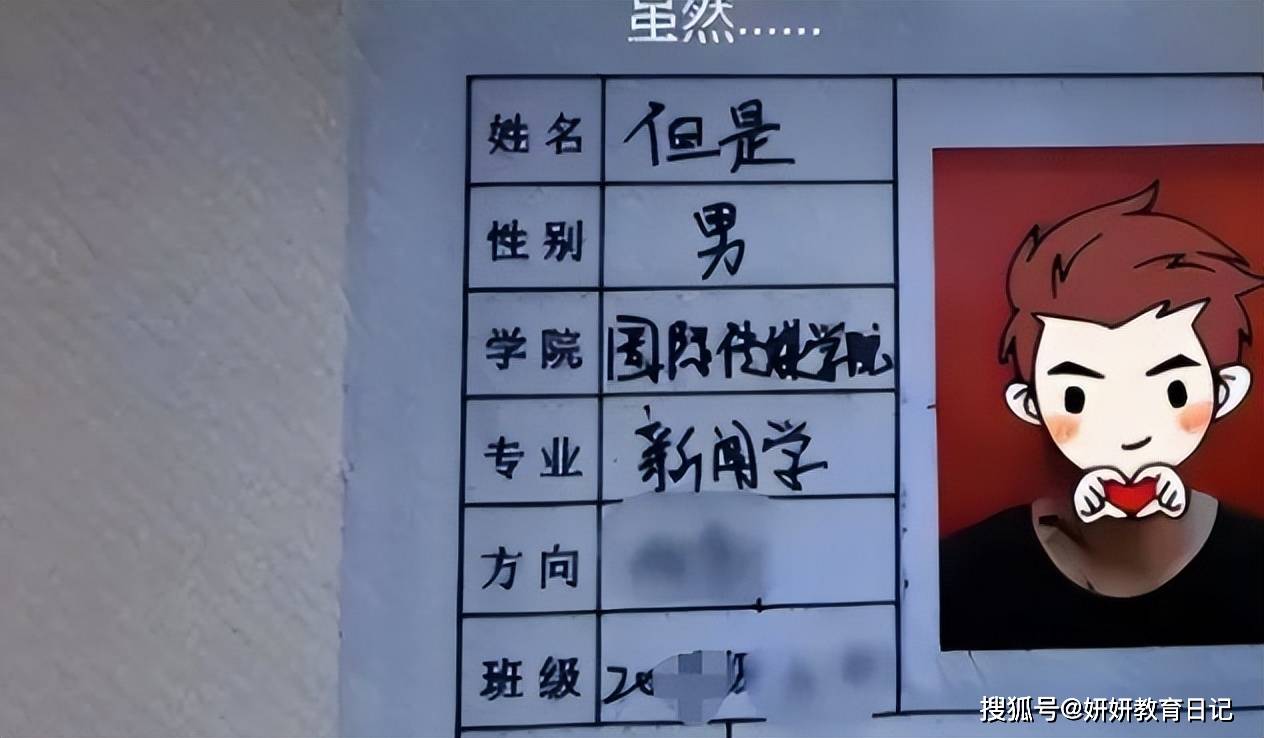 虽然......
姓名 但是
性别 男
学院 国际传媒学院
专业 新闻学
方向
班级 20
搜狐号@妍妍教育日记